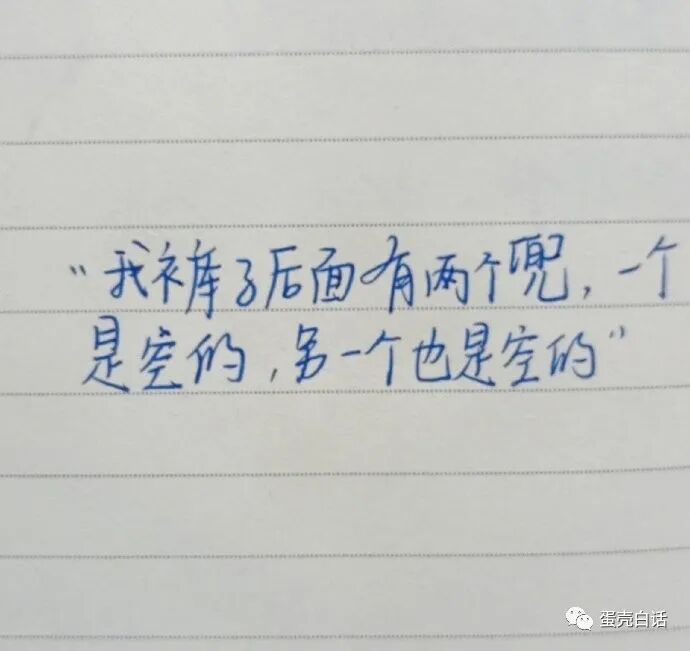 “我裤子后面有两个兜，一个
是空的，另一个也是空的”
蛋壳白话